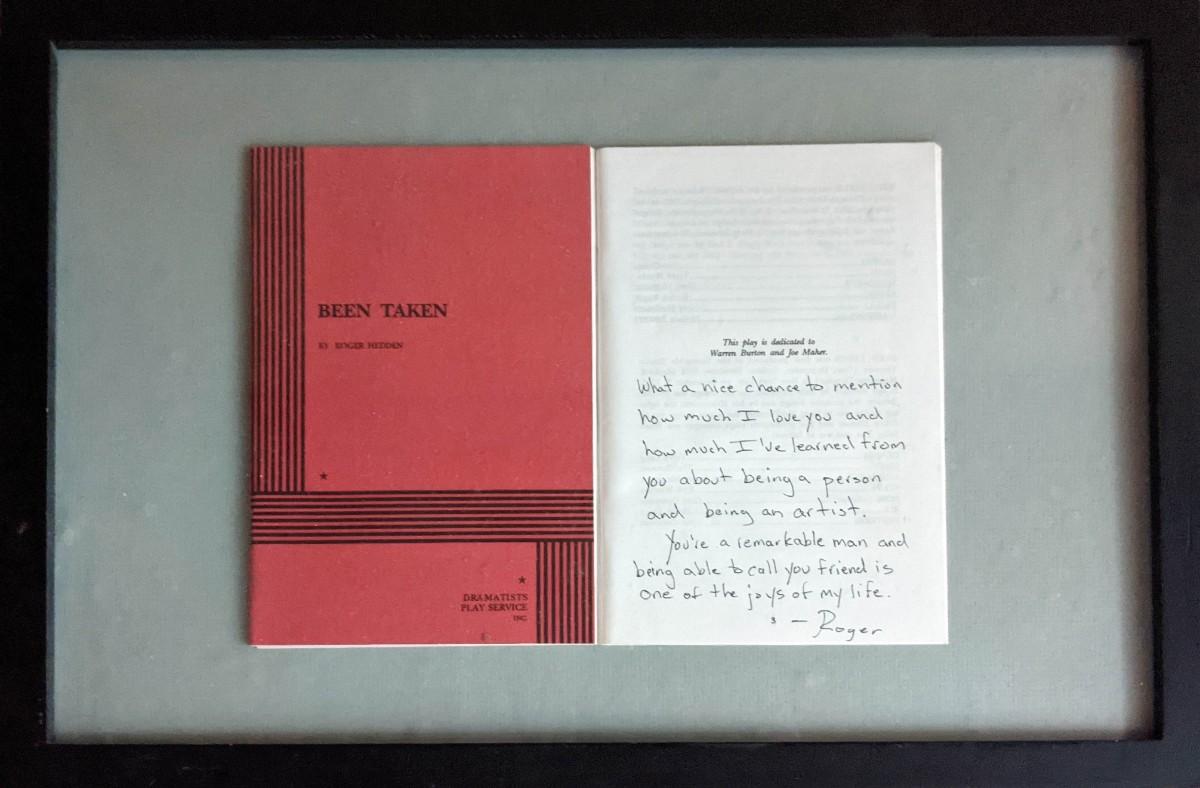 BEEN TAKEN
BY ROGER HEDDEN
DRAMATISTS
PLAY SERVICE
INC.
This play is dedicated to
Warren Burton and Joe Maher.
What a nice chance to mention
how much I love you and
how much I've learned from
you about being a person
and being an artist.
You're a remarkable man and
being able to call you friend is
one of the joys of my life.
3 — Roger